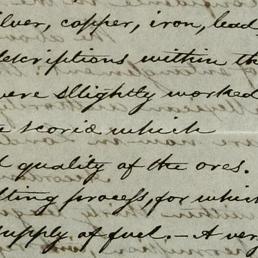 ilver, copper, iron, lead
descriptions within th
were slightly worked
e scoriæ which
d quality of the ores.
lting process, for whic
supply of fuel. – A ver